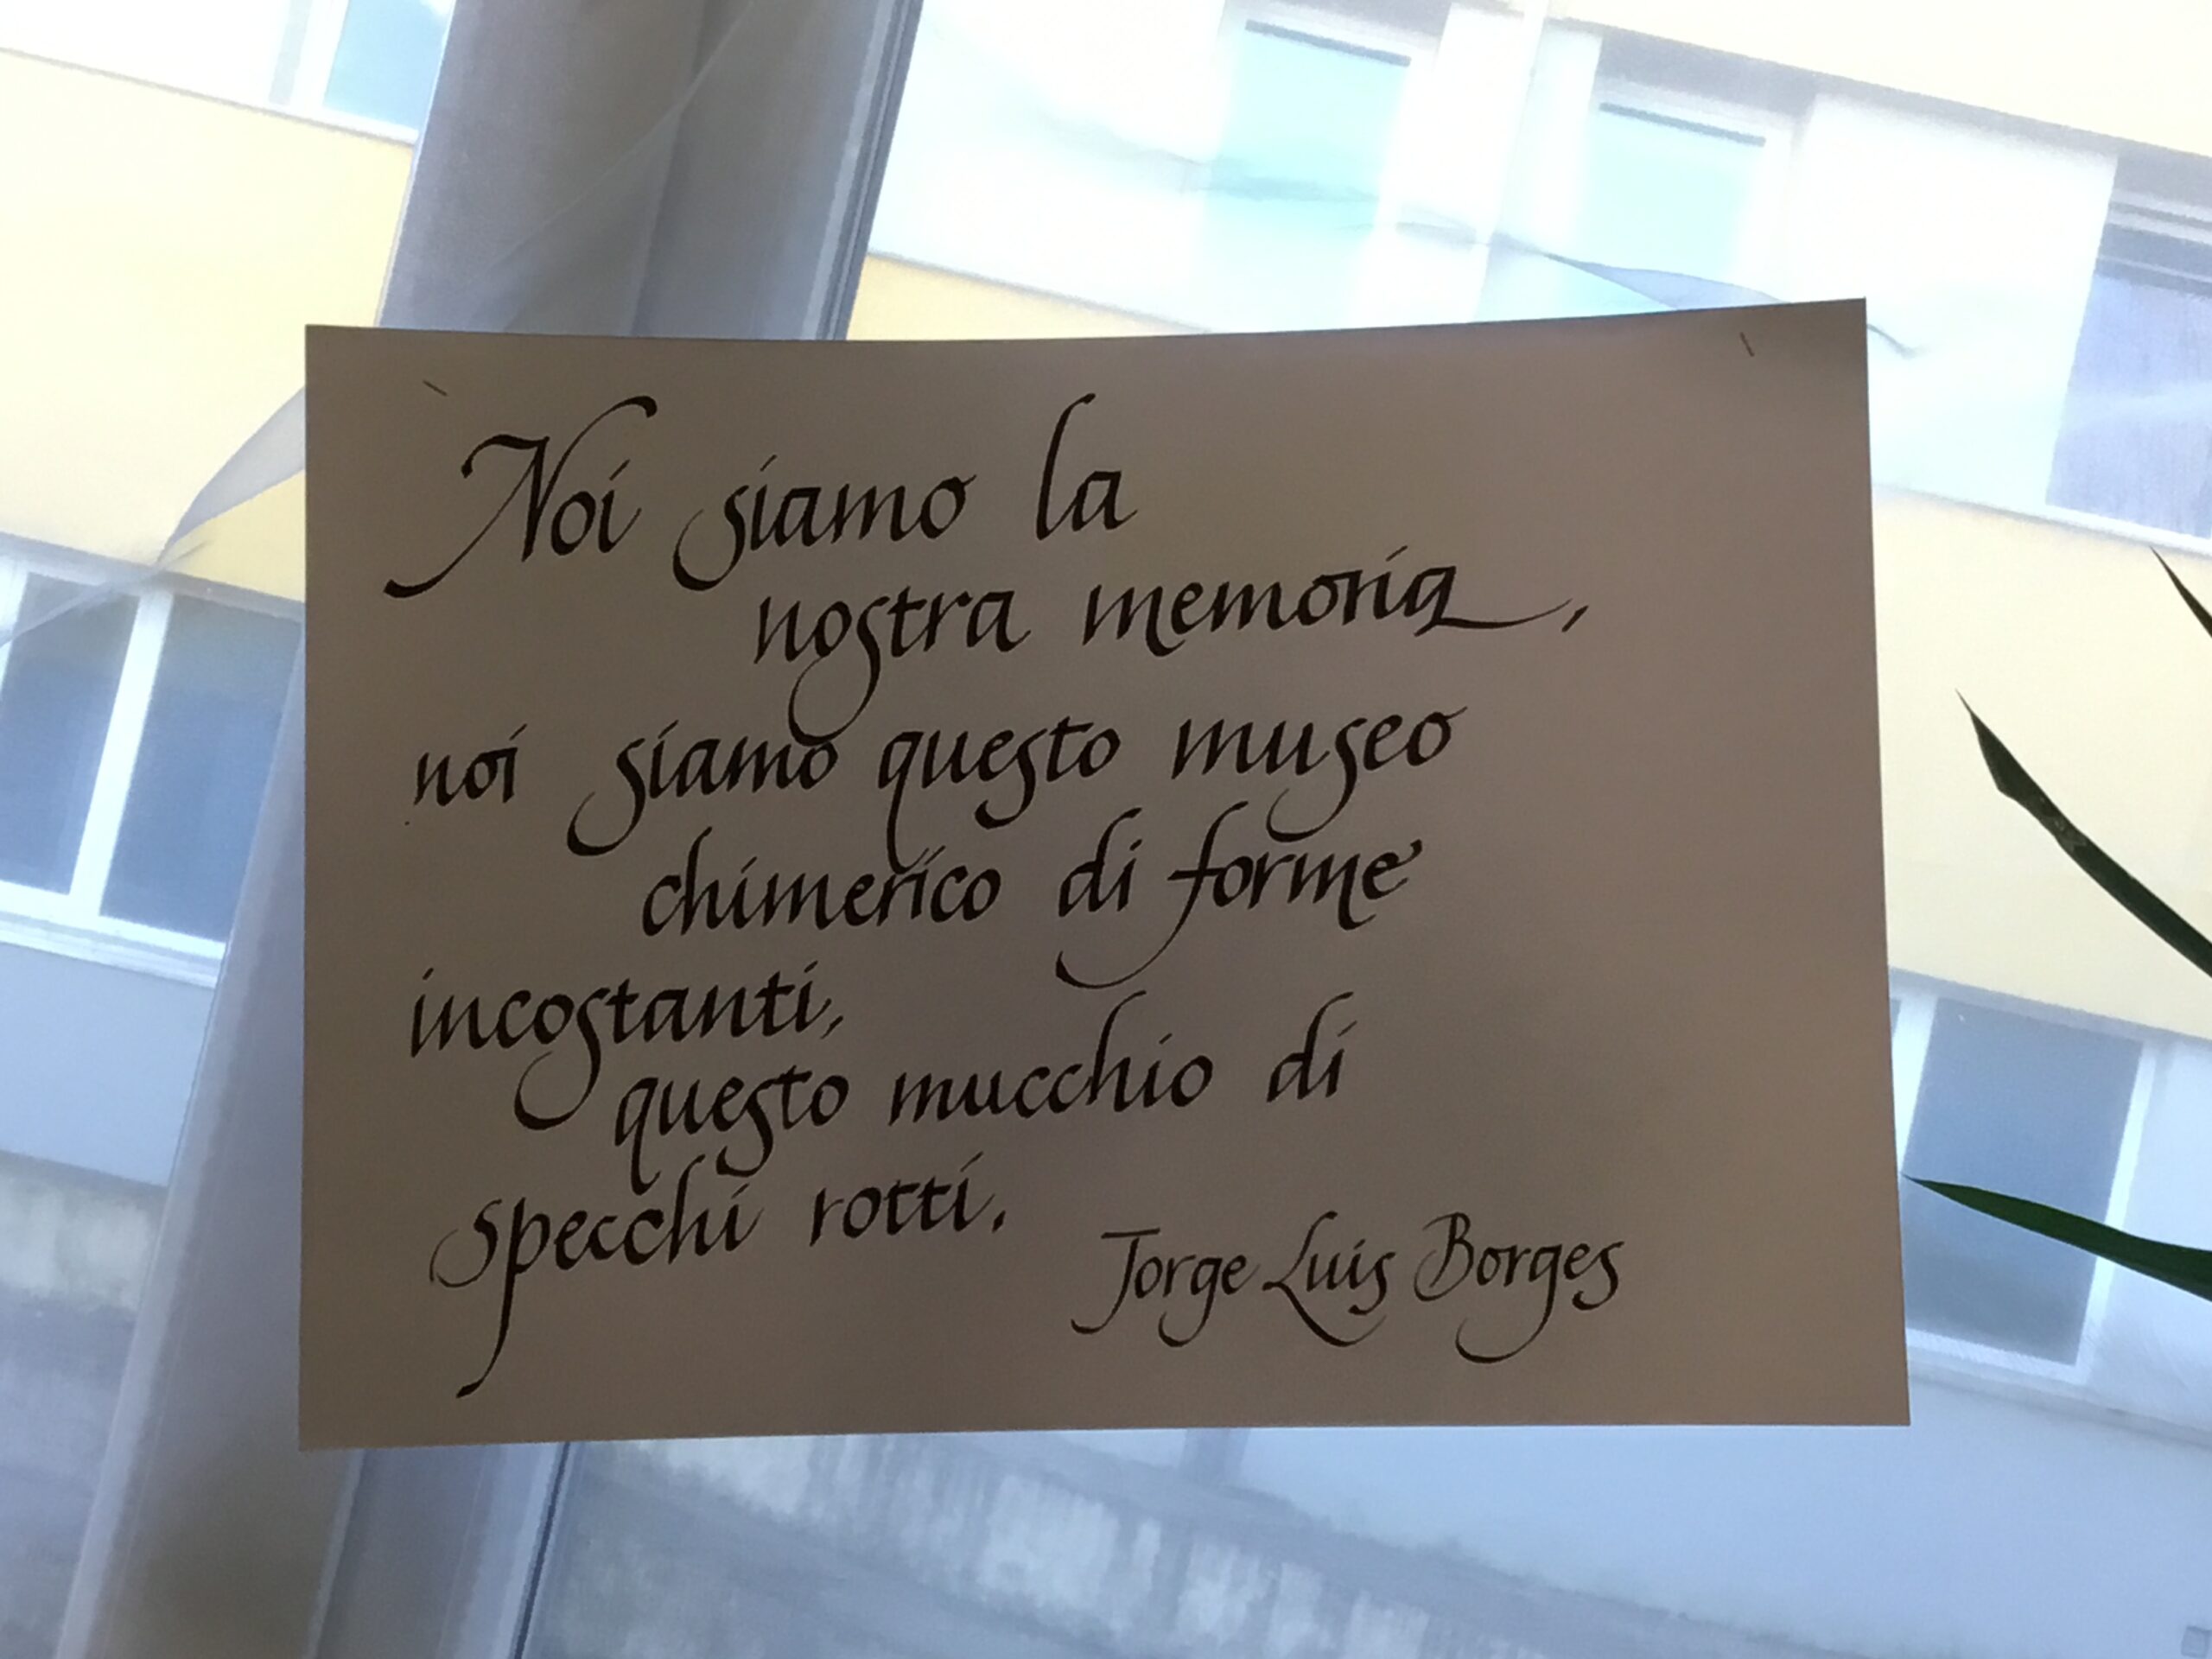 Noi siamo la
nostra memoria,
noi siamo questo museo
chimerico di forme
incostanti,
questo mucchio di
specchi rotti.
Jorge Luis Borges